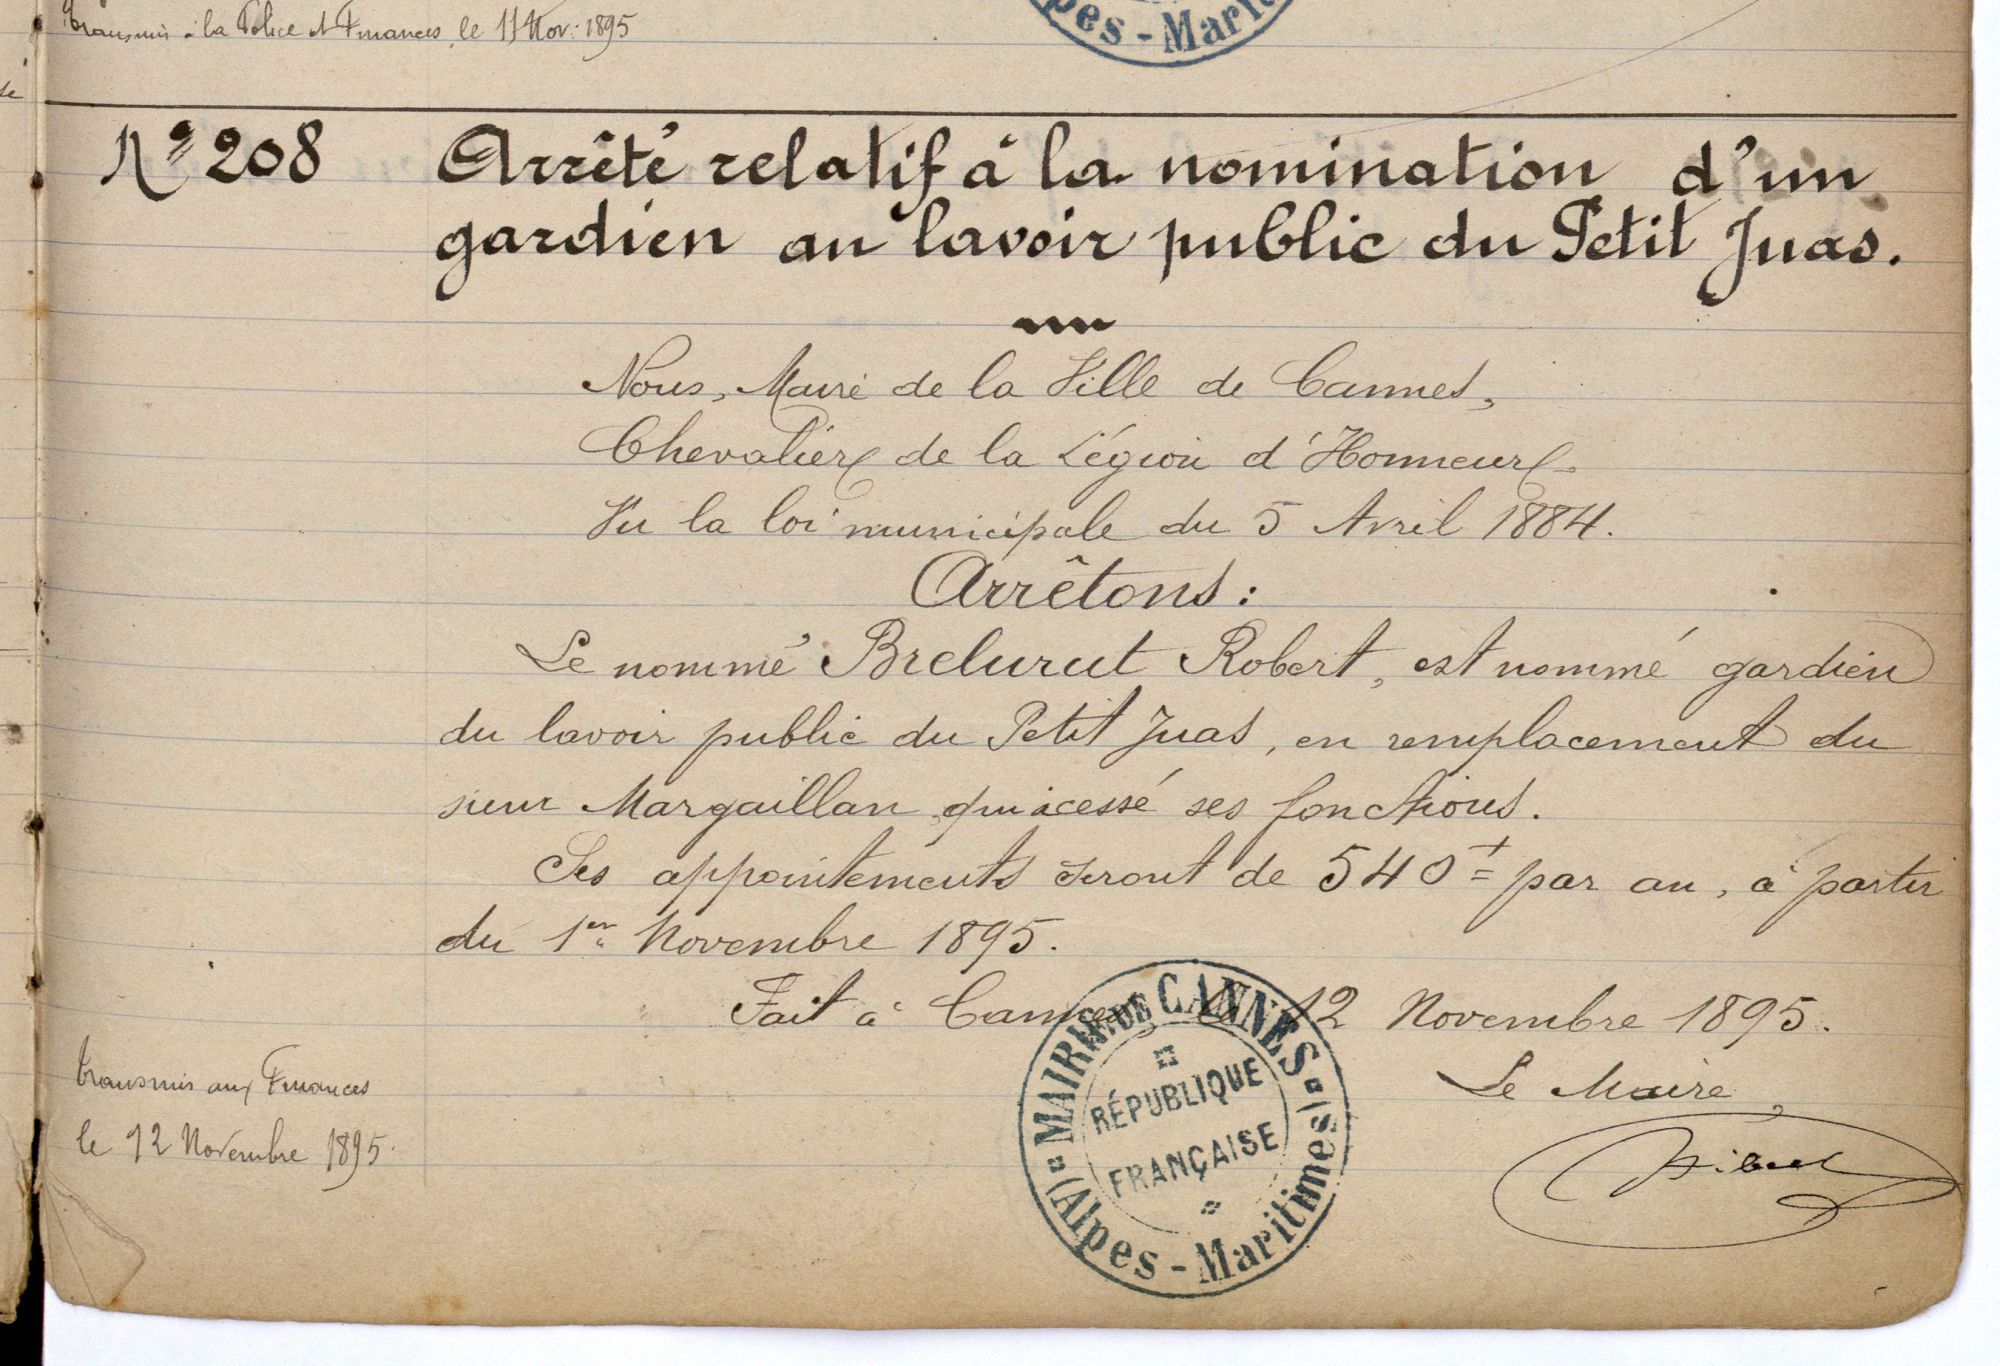 transmis à la Police et Finances, le 11 Nov: 1895
Alpes - Marit
se
Nº 208
Arrêté relatif à la nomination d'un
gardien au lavoir public du Petit Juas.
Nous, Maire de la Ville de Cannes,
Chevalier de la Légion d'Honneur,
Vu la loi municipale du 5 Avril 1884.
Arrêtons:
Le nommé Brelurut Robert, est nommé gardien
du lavoir public du Petit Juas, en remplacement du
sieur Margaillan qui a cessé ses fonctions.
Ses appointements seront de 540f par an, à partir
du 1er Novembre 1895.
Fait à Cannes, le 12 Novembre 1895.
Le Maire,
transmis aux Finances
le 12 Novembre 1895.
MAIRIE DE CANNES
RÉPUBLIQUE
FRANÇAISE
(Alpes-Maritimes)